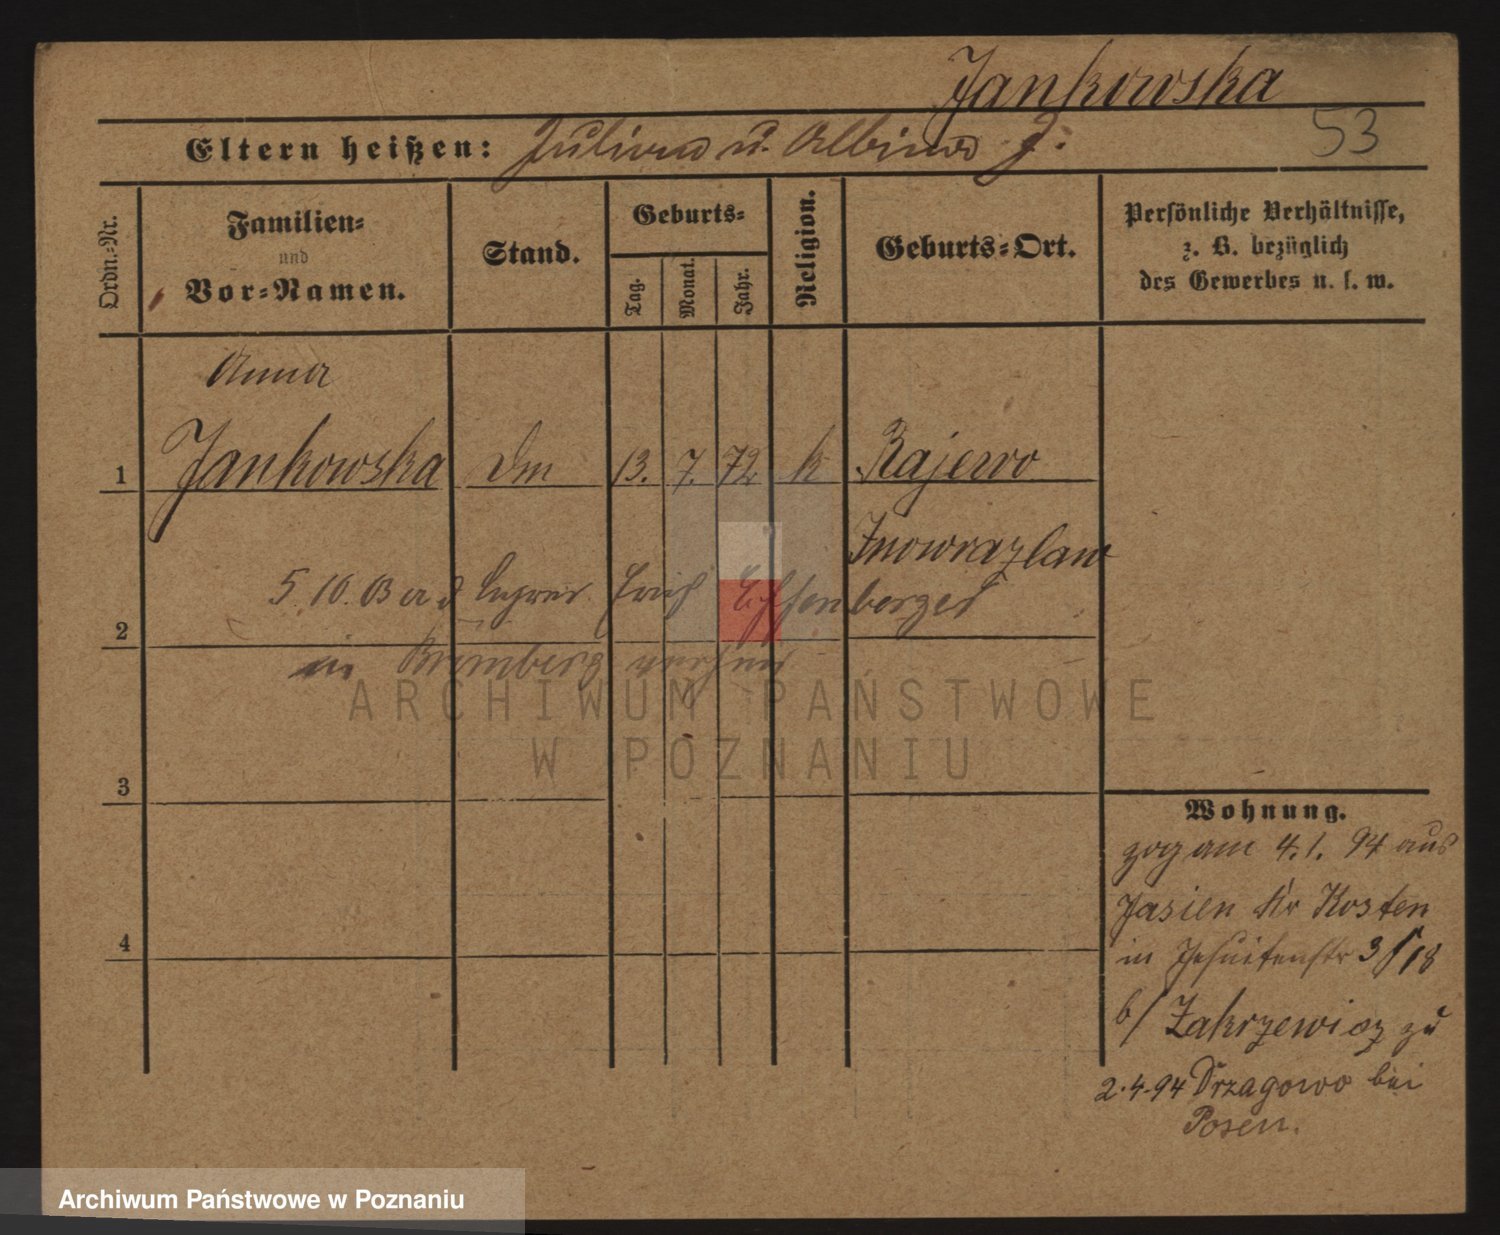 Jankowska
Eltern heißen: Julian u. Albina J.
53
Ordn.-Nr.
Familien-
und
Vor-Namen.
Stand.
Geburts-
Tag.
Monat.
Jahr.
Religion.
Geburts-Ort.
Persönliche Verhältnisse,
z. B. bezüglich
des Gewerbes u. s. w.
Anna
1 Jankowska 13. 7. 72 k Rajewo
Inowrazlaw
5. 10. Lehrer
2
in Bromberg
ARCHIWUM PAŃSTWOWE
W POZNANIU
3
Wohnung.
zog am 4. 1. 94 aus
Jasien Kr Kosten
4
in Jesuitenstr 3/18
b/ Zakrzewicz zu
2.4.94 Drzagowo bei
Posen.
Archiwum Państwowe w Poznaniu